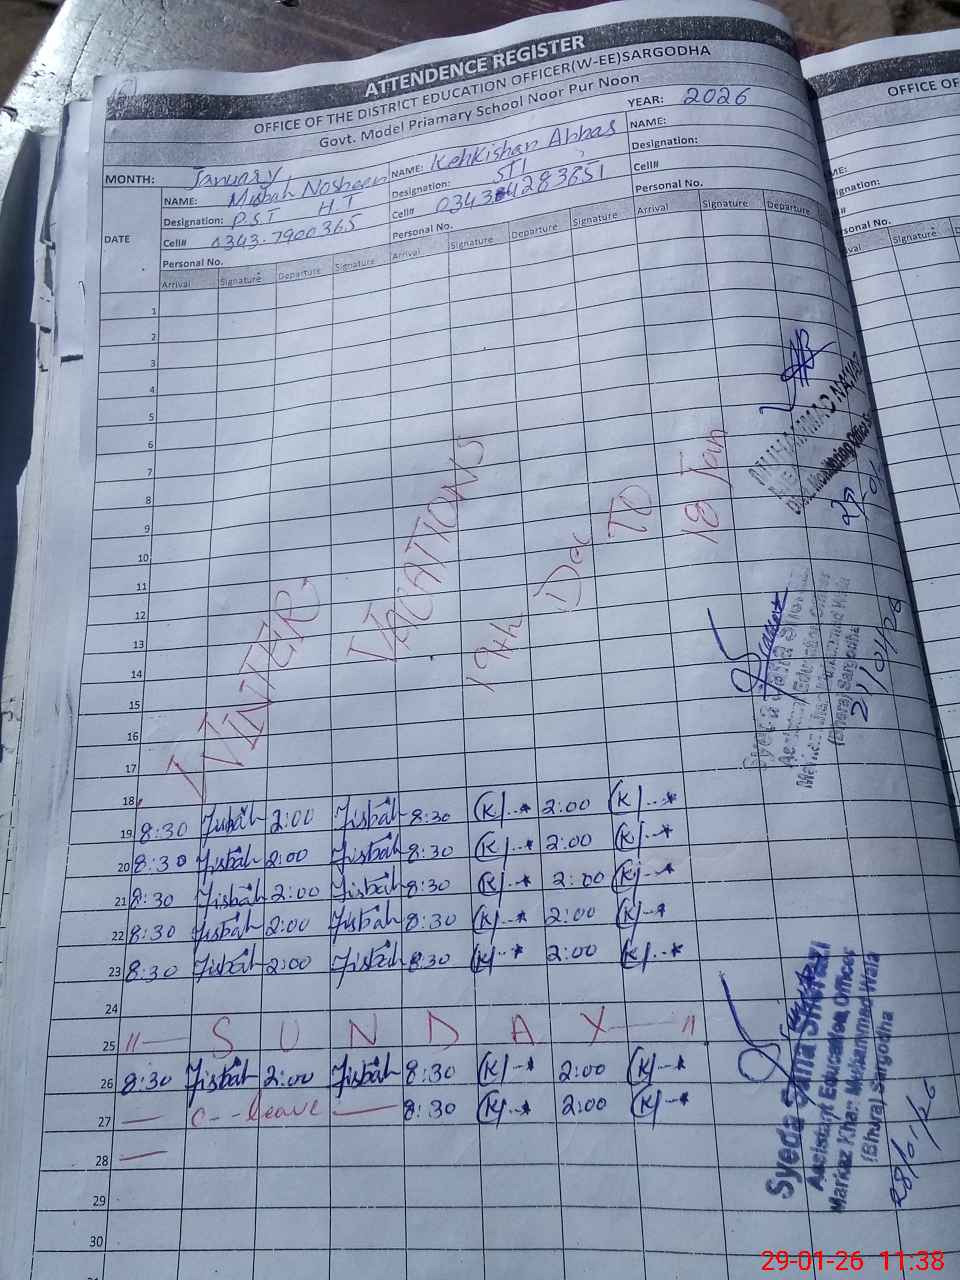 ATTENDENCE REGISTER
OFFICE OF THE DISTRICT EDUCATION OFFICER(W-EE)SARGODHA
Govt. Model Priamary School Noor Pur Noon
MONTH: January YEAR: 2026
NAME: Misbah Nosheen NAME: Kehkishan Abbas NAME:
Designation: P.S.T H.T Designation: STI Designation:
Cell# 0343-7900365 Cell# 03434283651 Cell#
Personal No. Personal No. Personal No.
DATE Arrival Signature Departure Signature Arrival Signature Departure Signature Arrival Signature Departure
1
2
3
4
5
6
7
8
9
10
11
12
13
14
15
16
17
18
WINTER VACATIONS 19th Dec TO 18 Jan
19 8:30 Misbah 2:00 Misbah 8:30 K 2:00 K
20 8:30 Misbah 2:00 Misbah 8:30 K 2:00 K
21 8:30 Misbah 2:00 Misbah 8:30 K 2:00 K
22 8:30 Misbah 2:00 Misbah 8:30 K 2:00 K
23 8:30 Misbah 2:00 Misbah 8:30 K 2:00 K
24
25 "— S U N D A Y —"
26 8:30 Misbah 2:00 Misbah 8:30 K 2:00 K
27 — C--leave — 8:30 K 2:00 K
28 —
29
30
MUHAMMAD NAWAZ
21/01/26
Syeda
Assistant Education Officer
Markaz Khar Muhammad Wala
(Bhera) Sargodha
28/01/26
OFFICE OF
Personal No.
Arrival Signature
29-01-26 11:38